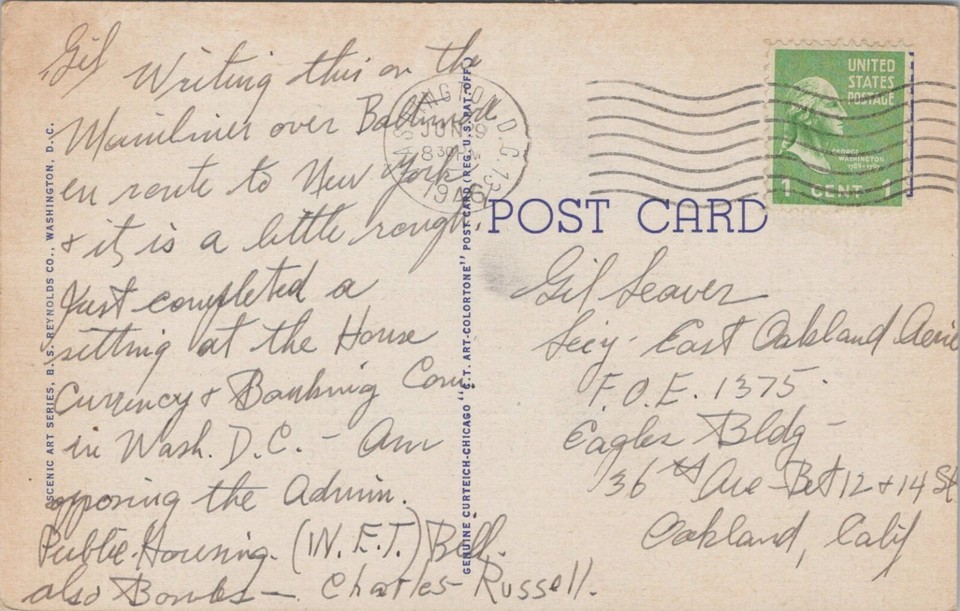 Gil Writing this on the
Mainliner over Baltimore
en route to New York
& it is a little rough.
Just completed a
sitting at the House
Currency & Banking Com.
in Wash. D.C. - Am
opposing the Admin.
Public Housing. (W.E.T.) Bill.
also Bonds — Charles Russell.
SCENIC ART SERIES, B. S. REYNOLDS CO., WASHINGTON, D. C.
GENUINE CURTEICH-CHICAGO "C.T. ART-COLORTONE" POST CARD (REG. U.S. PAT. OFF.)
WASHINGTON, D.C. 13
JUN 9
8 30 PM
1946
UNITED
STATES
POSTAGE
GEORGE
WASHINGTON
1789-1797
1 CENT 1
POST CARD
Gil Seaver
Secy - East Oakland Aerie
F.O.E. 1375.
Eagles Bldg -
36th Ave - Bet 12 & 14 St
Oakland, Calif